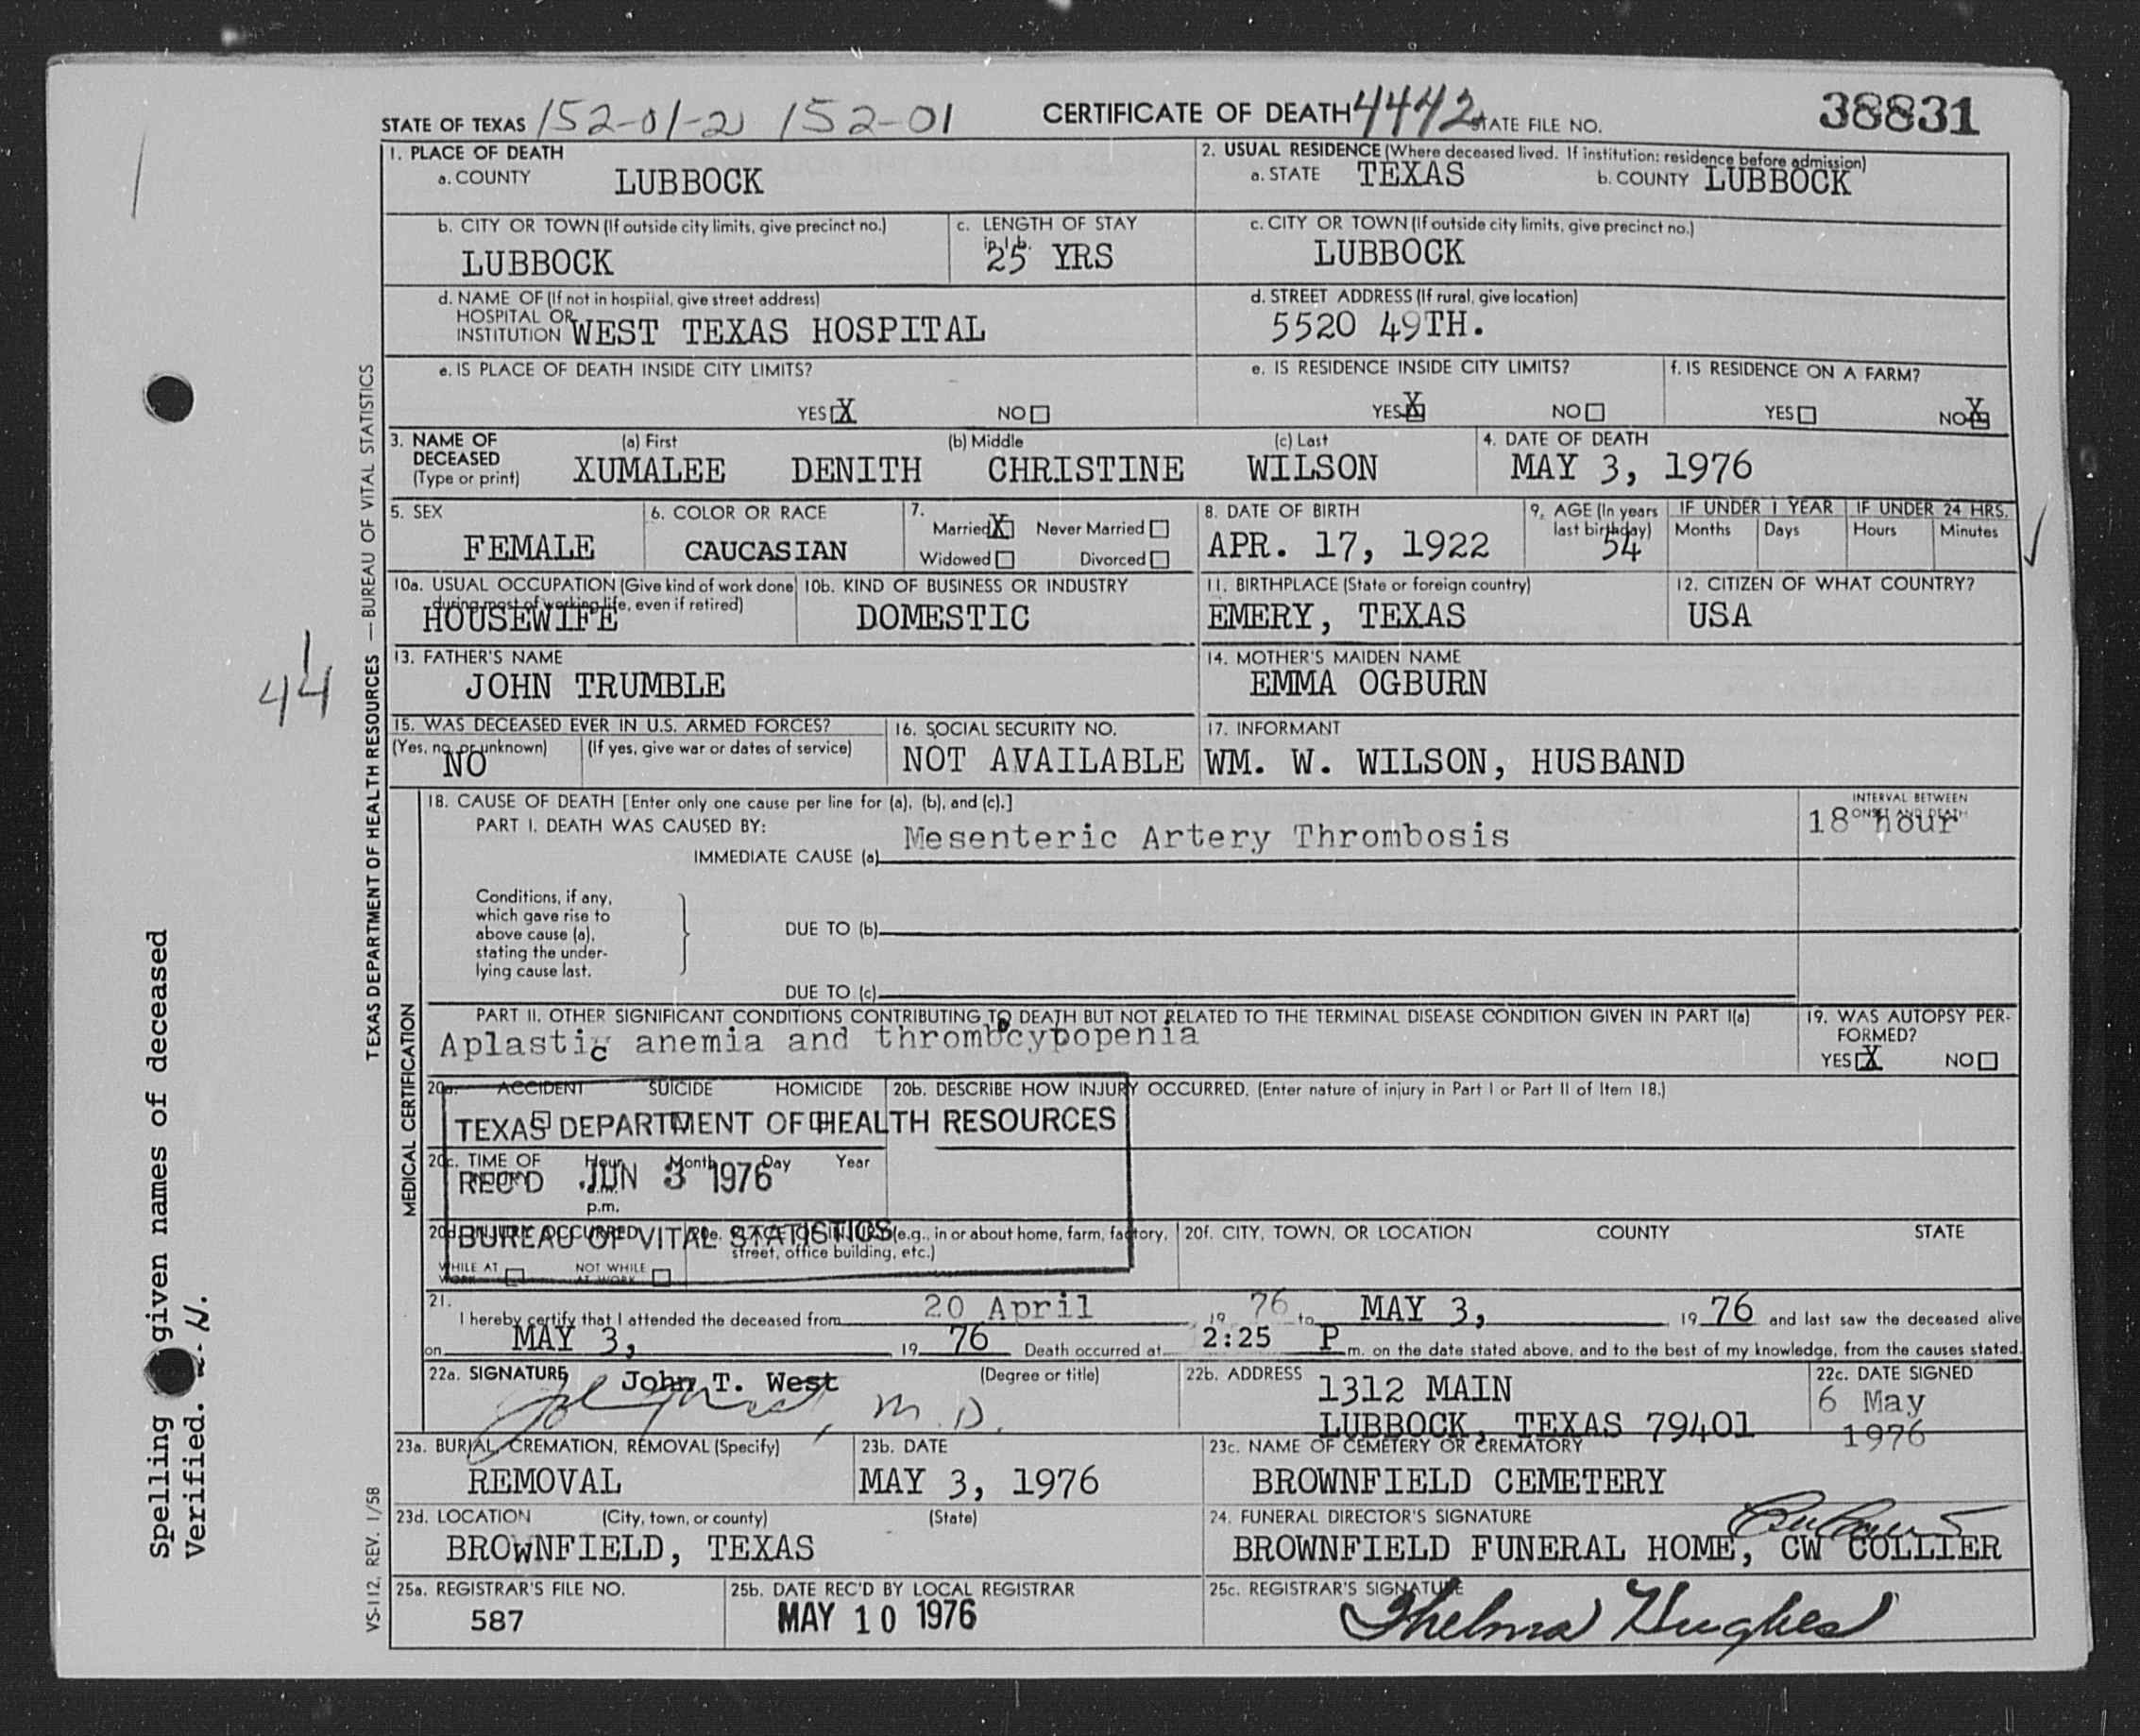 STATE OF TEXAS 152-01-2 152-01 CERTIFICATE OF DEATH 4442 STATE FILE NO. 38831
1. PLACE OF DEATH
a. COUNTY LUBBOCK
2. USUAL RESIDENCE (Where deceased lived. If institution: residence before admission)
a. STATE TEXAS b. COUNTY LUBBOCK
b. CITY OR TOWN (If outside city limits, give precinct no.)
LUBBOCK
c. LENGTH OF STAY
in 1b.
25 YRS
c. CITY OR TOWN (If outside city limits, give precinct no.)
LUBBOCK
d. NAME OF (If not in hospital, give street address)
HOSPITAL OR
INSTITUTION WEST TEXAS HOSPITAL
d. STREET ADDRESS (If rural, give location)
5520 49TH.
e. IS PLACE OF DEATH INSIDE CITY LIMITS?
YES X NO
e. IS RESIDENCE INSIDE CITY LIMITS?
YES X NO
f. IS RESIDENCE ON A FARM?
YES NO X
3. NAME OF (a) First (b) Middle (c) Last
DECEASED
(Type or print) XUMALEE DENITH CHRISTINE WILSON
4. DATE OF DEATH
MAY 3, 1976
5. SEX
FEMALE
6. COLOR OR RACE
CAUCASIAN
7.
Married X Never Married
Widowed Divorced
8. DATE OF BIRTH
APR. 17, 1922
9. AGE (In years
last birthday)
54
IF UNDER 1 YEAR IF UNDER 24 HRS.
Months Days Hours Minutes
10a. USUAL OCCUPATION (Give kind of work done
during most of working life, even if retired)
HOUSEWIFE
10b. KIND OF BUSINESS OR INDUSTRY
DOMESTIC
11. BIRTHPLACE (State or foreign country)
EMERY, TEXAS
12. CITIZEN OF WHAT COUNTRY?
USA
13. FATHER'S NAME
JOHN TRUMBLE
14. MOTHER'S MAIDEN NAME
EMMA OGBURN
15. WAS DECEASED EVER IN U.S. ARMED FORCES?
(Yes, no, or unknown) (If yes, give war or dates of service)
NO
16. SOCIAL SECURITY NO.
NOT AVAILABLE
17. INFORMANT
WM. W. WILSON, HUSBAND
18. CAUSE OF DEATH [Enter only one cause per line for (a), (b), and (c).]
PART I. DEATH WAS CAUSED BY:
IMMEDIATE CAUSE (a) Mesenteric Artery Thrombosis
INTERVAL BETWEEN
ONSET AND DEATH
18 hour
Conditions, if any,
which gave rise to
above cause (a),
stating the under-
lying cause last.
DUE TO (b)
DUE TO (c)
PART II. OTHER SIGNIFICANT CONDITIONS CONTRIBUTING TO DEATH BUT NOT RELATED TO THE TERMINAL DISEASE CONDITION GIVEN IN PART I(a)
Aplastic anemia and thrombcytopenia
19. WAS AUTOPSY PER-
FORMED?
YES X NO
20a. ACCIDENT SUICIDE HOMICIDE
20b. DESCRIBE HOW INJURY OCCURRED. (Enter nature of injury in Part I or Part II of Item 18.)
TEXAS DEPARTMENT OF HEALTH RESOURCES
20c. TIME OF Hour Month Day Year
REC'D JUN 3 1976
p.m.
BUREAU OF VITAL STATISTICS
20d. INJURY OCCURRED
WHILE AT WORK NOT WHILE AT WORK
20e. PLACE OF INJURY (e.g., in or about home, farm, factory,
street, office building, etc.)
20f. CITY, TOWN, OR LOCATION COUNTY STATE
21.
I hereby certify that I attended the deceased from 20 April, 19 76 to MAY 3, 19 76 and last saw the deceased alive
on MAY 3, 19 76 Death occurred at 2:25 P m. on the date stated above, and to the best of my knowledge, from the causes stated.
22a. SIGNATURE John T. West (Degree or title)
, M.D.
22b. ADDRESS 1312 MAIN
LUBBOCK, TEXAS 79401
22c. DATE SIGNED
6 May
1976
23a. BURIAL, CREMATION, REMOVAL (Specify)
REMOVAL
23b. DATE
MAY 3, 1976
23c. NAME OF CEMETERY OR CREMATORY
BROWNFIELD CEMETERY
23d. LOCATION (City, town, or county) (State)
BROWNFIELD, TEXAS
24. FUNERAL DIRECTOR'S SIGNATURE
BROWNFIELD FUNERAL HOME, CW COLLIER
25a. REGISTRAR'S FILE NO.
587
25b. DATE REC'D BY LOCAL REGISTRAR
MAY 10 1976
25c. REGISTRAR'S SIGNATURE
Thelma Hughes
TEXAS DEPARTMENT OF HEALTH RESOURCES — BUREAU OF VITAL STATISTICS
MEDICAL CERTIFICATION
VS-112, REV. 1/58
44
1
Spelling of given names of deceased
Verified.